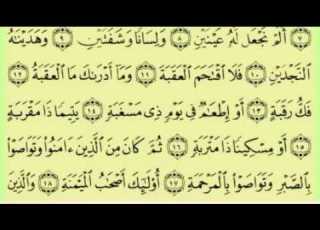 ٧ أَلَمْ نَجْعَل لَّهُۥ عَيْنَيْنِ ٨ وَلِسَانًا وَشَفَتَيْنِ ٩ وَهَدَيْنَٰهُ
ٱلنَّجْدَيْنِ ١٠ فَلَا ٱقْتَحَمَ ٱلْعَقَبَةَ ١١ وَمَآ أَدْرَىٰكَ مَا ٱلْعَقَبَةُ ١٢
فَكُّ رَقَبَةٍ ١٣ أَوْ إِطْعَٰمٌ فِى يَوْمٍ ذِى مَسْغَبَةٍ ١٤ يَتِيمًا ذَا مَقْرَبَةٍ
١٥ أَوْ مِسْكِينًا ذَا مَتْرَبَةٍ ١٦ ثُمَّ كَانَ مِنَ ٱلَّذِينَ ءَامَنُوا۟ وَتَوَاصَوْا۟
بِٱلصَّبْرِ وَتَوَاصَوْا۟ بِٱلْمَرْحَمَةِ ١٧ أُو۟لَٰٓئِكَ أَصْحَٰبُ ٱلْمَيْمَنَةِ ١٨ وَٱلَّذِينَ